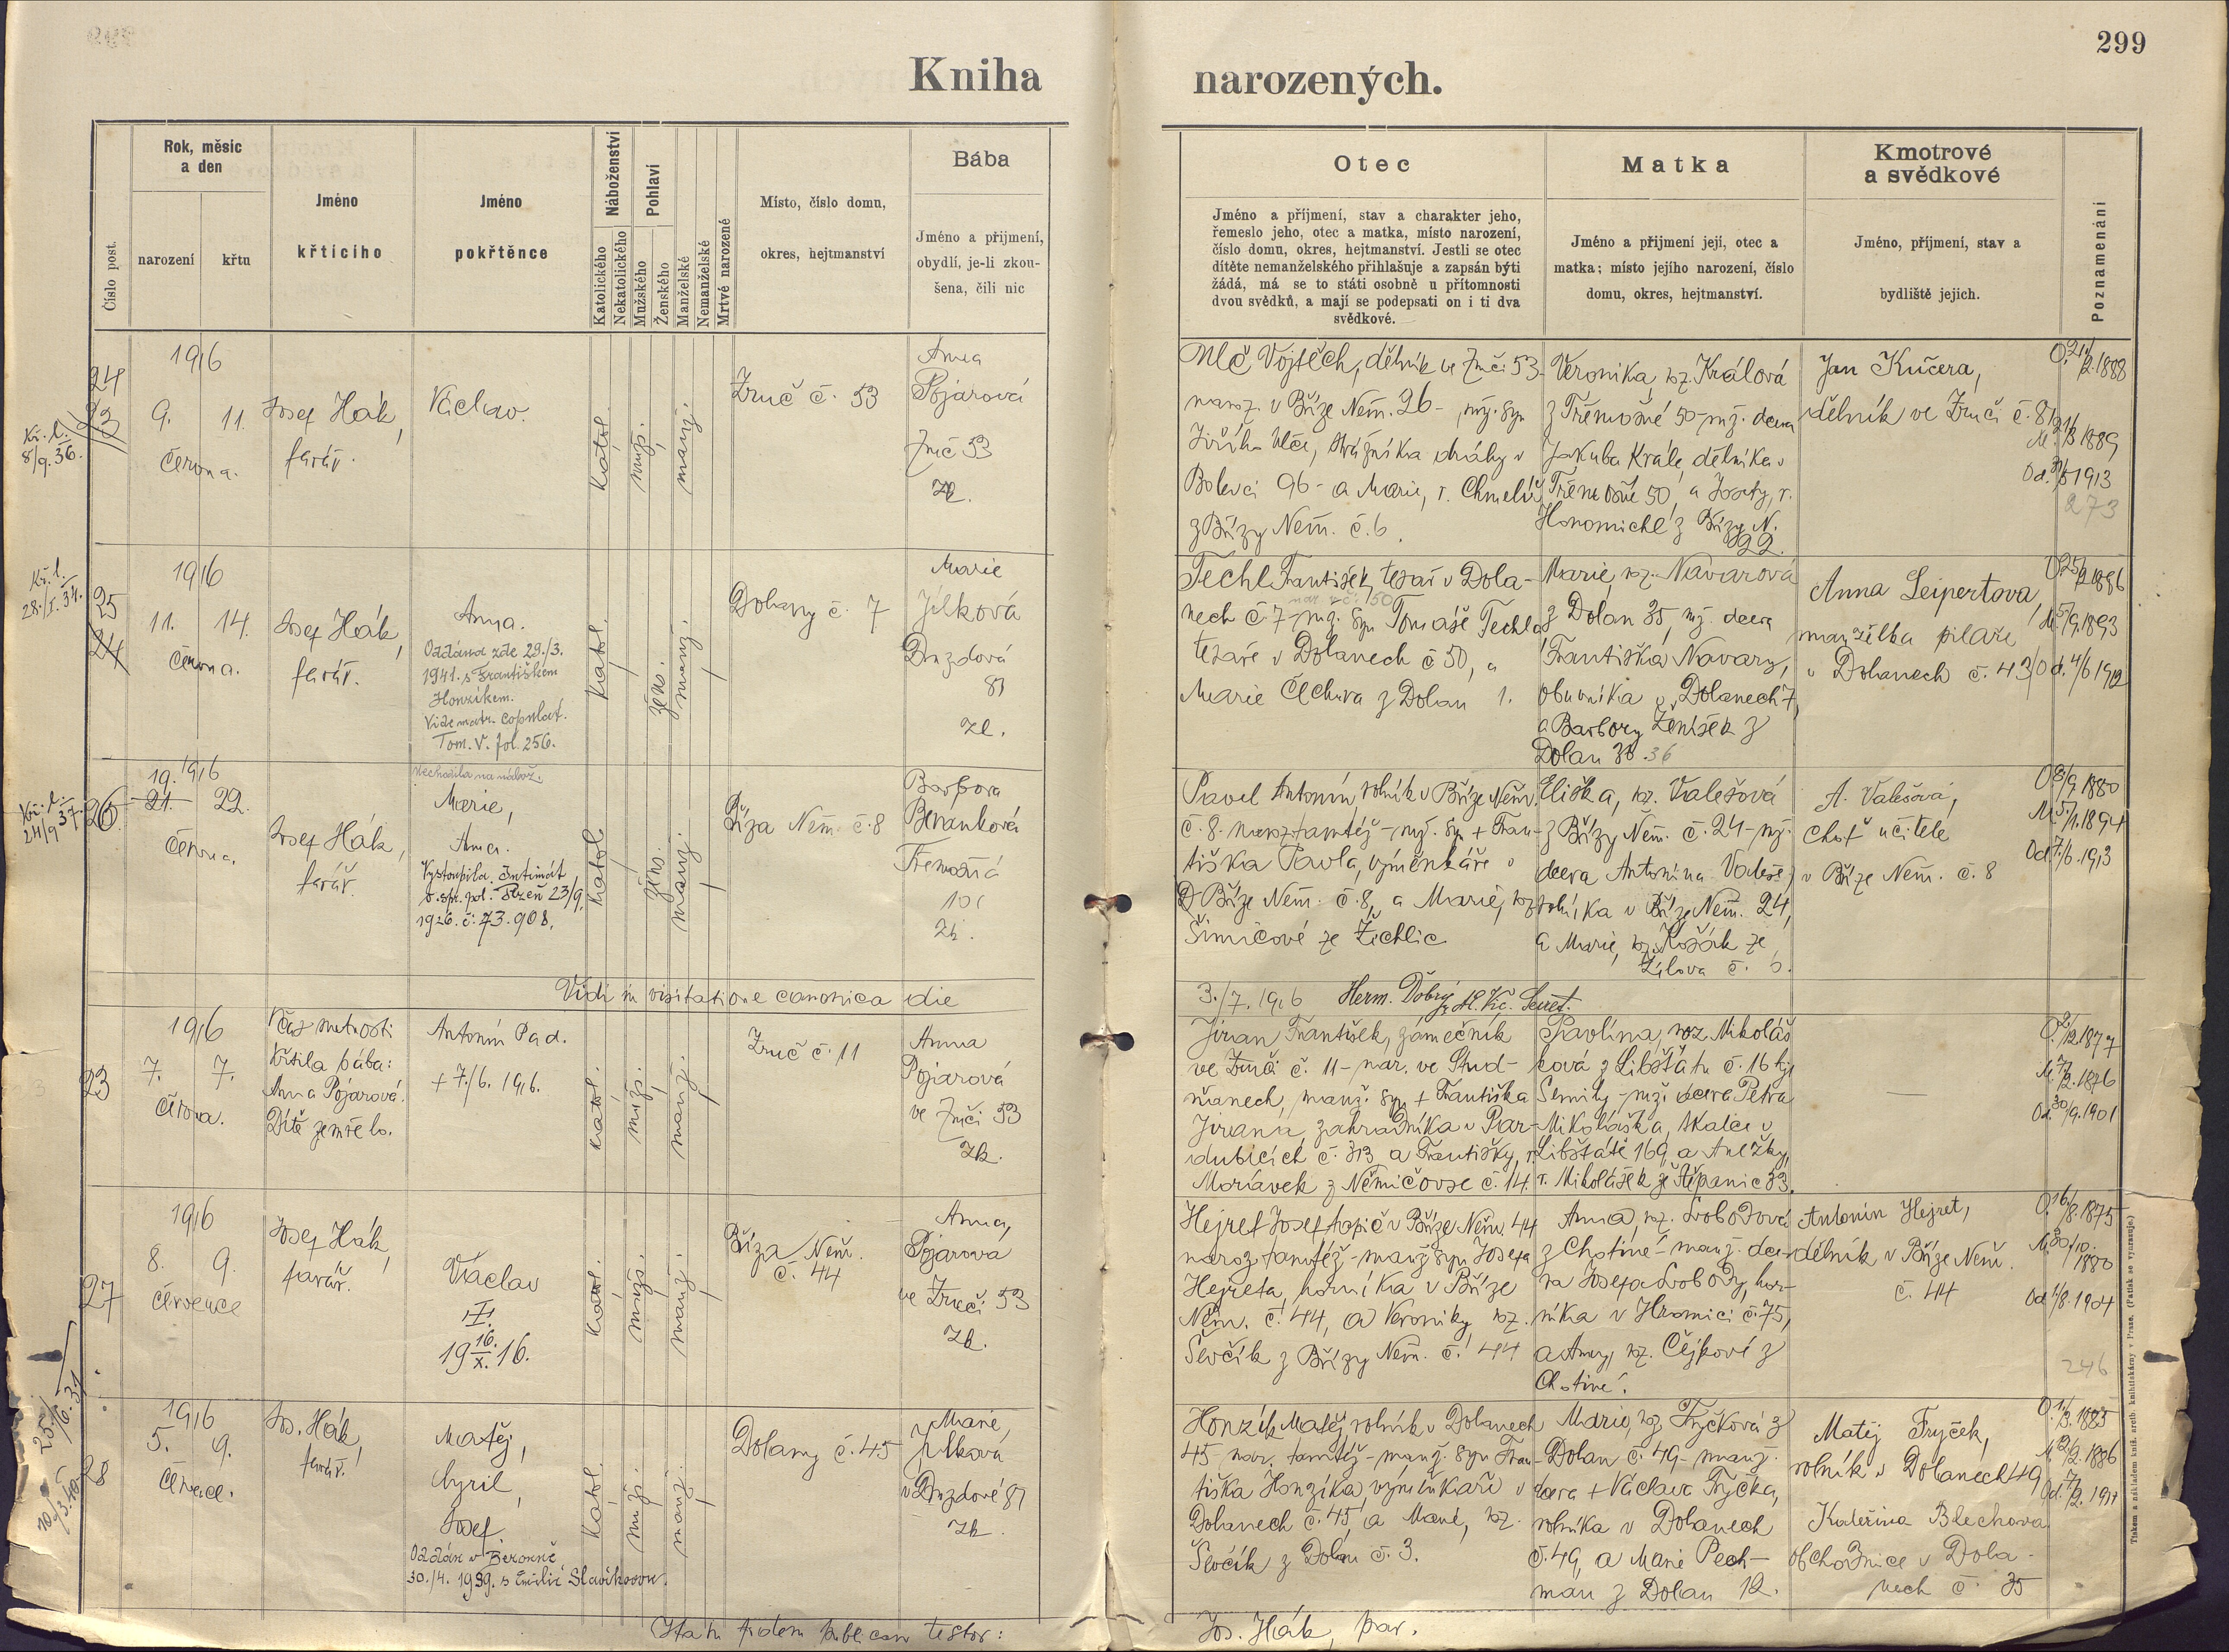 299
Kniha narozených.
Číslo post.
Rok, měsíc
a den
narození
křtu
Jméno
křtícího
Jméno
pokřtěnce
Náboženství
Katolického
Nekatolického
Pohlaví
Mužského
Ženského
Manželské
Nemanželské
Mrtvé narozené
Místo, číslo domu,
okres, hejtmanství
Bába
Jméno a přijmení,
obydlí, je-li zkou-
šena, čili nic
Otec
Jméno a příjmení, stav a charakter jeho,
řemeslo jeho, otec a matka, místo narození,
číslo domu, okres, hejtmanství. Jestli se otec
dítěte nemanželského přihlašuje a zapsán býti
žádá, má se to státi osobně u přítomnosti
dvou svědků, a mají se podepsati on i ti dva
svědkové.
Matka
Jméno a přijmení její, otec a
matka; místo jejího narození, číslo
domu, okres, hejtmanství.
Kmotrové
a svědkové
Jméno, příjmení, stav a
bydliště jejich.
Poznamenání
Kř. l.
8/9. 36.
24
23
1916
9. 11.
června.
Josef Hák,
farář.
Václav.
katol.
mužs.
manž.
Zruč č. 53
Anna
Pojarová
Zruč 53
zk.
Vlč Vojtěch, dělník ve Zruči 53-
naroz. v Bříze Něm. 26 - mž. syn
Jiřího Vlče, strážníka dráhy v
Bolevci 96 - a Marie, r. Chmelíř
z Břízy Něm. č. 6.
Veronika, roz. Králová
z Třemošné 50 - mž. dcera
Jakuba Krále, dělníka v
Třemošné 50, a Josefy, r.
Honomichl z Břízy N.
22.
Jan Kučera,
dělník ve Zruči č. 8
O. 21/2. 1888
M. 1889
Od. 1913
273
Kř. l.
28./I. 34.
25
24
1916
11. 14.
června.
Josef Hák,
farář.
Anna.
Oddána zde 29./3.
1941. s Františkem
Honzíkem.
Vide matr. copulat.
Tom. V. fol. 256.
katol.
žens.
manž.
Dolany č. 7
Marie
Jílková
Druzdová
81
zk.
Techl František, tesař v Dola-
nar. v č. 50
nech č. 7 - mž. syn Tomáše Techla
tesaře v Dolanech č 50, a
Marie Čechura z Dolan 1.
Marie, roz. Navarová
z Dolan 35, mž. dcera
Františka Navary,
obuvníka v Dolanech 7,
a Barbory Ženíšek z
Dolan 36
Anna Leipertova,
manželka pilaře
v Dolanech č. 43
O. 25/2 1886
M. 5/9. 1893
Od. 4/6 1912
Kř. l.
24/9 37.
26
1916
19.
21. 22.
června.
Josef Hák,
farář.
Nechodila na nábož.
Marie,
Anna.
Vystoupila. Intimát
o. spr. pol. Plzeň 23/9.
1926. č: 73.908.
katol
žens.
manž.
Bříza Něm. č. 8
Barbora
Beranková
Třemošná
zk.
Pavel Antonín, rolník v Bříze Něm.
č. 8. naroz. tamtéž - mž. syn + Fran-
tiška Pavla, výměnkáře v
Bříze Něm. č. 8, a Marie, roz.
Šimicové ze Žichlic
Eliška, roz. Valešová
z Břízy Něm. č. 24 - mž.
dcera Antonína Valeše,
rolníka v Bříze Něm. 24,
a Marie, roz. Košák ze
Žilova č. 6.
A. Valešová,
choť učitele
v Bříze Něm. č. 8
O 8/9 1880
M. 5/1. 1894
Od. 7/6. 1913
Vidi in visitatione canonica die 3./7. 1916 Herm. Dobrý
23
1916
7. 7.
června.
V čas nutnosti
křtila bába:
Anna Pojarová.
Dítě zemřelo.
Antonín Pad.
+ 7./6. 1916.
katol.
mužs.
manž.
Zruč č. 11
Anna
Pojarová
ve Zruči 53
zk.
Jiran František, zámečník
ve Zruči č. 11 - nar. ve Stud-
ňanech, manž. syn + Františka
Jirana, zahradníka v Par-
dubicích č. 313 a Františky, r.
Morávek z Němičovse č. 14.
Pavlína, roz. Mikoláš-
ková z Libštátu č. 16 hjt
Semily - mž. dcera Petra
Mikoláška, tkalce v
Libštátě 169, a Anežky,
r. Mikolášek ze Štěpanic 33.
—
O. 1877
M. 1876
Od. 30/9. 1901
27
1916
8. 9.
července
Josef Hák,
farář.
Václav
II.
19 16./X. 16.
katol.
mužs.
manž.
Bříza Něm.
č. 44
Anna,
Pojarova
ve Zruči 53
zk.
Hejret Josef, topič v Bříze Něm. 44
naroz. tamtéž - manž. syn Josefa
Hejreta, horníka v Bříze
Něm. č. 44, a Veroniky roz.
Ševčík z Břízy Něm. č. 44
Anna, roz. Svobodová
z Chotiné - manž. dce-
ra Josefa Svobody, hor-
níka v Hromici č. 75,
a Anny, roz. Čejkové z
Chotiné.
Antonín Hejret,
dělník v Bříze Něm.
č. 44
O. 16./8. 1875
M. 30/10. 1880
Od. 1/8. 1904
246
25./6. 31
28
1916
5. 9.
července.
Jos. Hák,
farář.
Matěj,
Cyril,
Josef.
Oddán v Berouně
30./4. 1939. s Emilií Slavíkovou.
katol.
muž.
manž.
Dolany č. 45
Marie,
Jílkova
v Druzdové 81
zk.
Honzík Matěj, rolník v Dolanech
45 nar. tamtéž - manž. syn Fran-
tiška Honzíka, výměnkáře v
Dolanech č. 45, a Marie, roz.
Ševčík z Dolan č. 3.
Marie, roz. Fryčková z
Dolan č. 49 - manž.
dcera + Václava Fryčka,
rolníka v Dolanech
č. 49, a Marie Pech-
man z Dolan 12.
Matěj Fryček,
rolník v Dolanech 49
Kateřina Blechova
obchodnice v Dola-
nech č. 35
O. 1885
M. 1886
Od. 1911
Tiskem a nákladem kníž. arcib. knihtiskárny v Praze. (Patisk se vyhrazuje.)
Ita in fidem publicam testor: Jos. Hák, par.